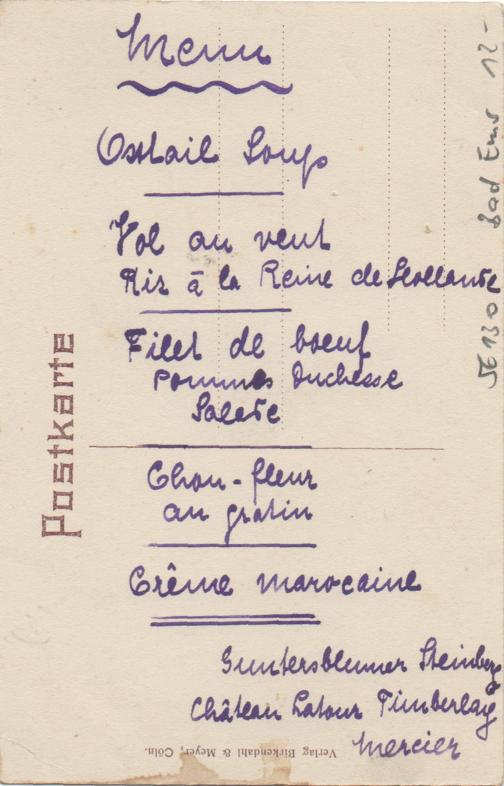 Menu
Oxtail Soup
Vol au vent
Riz à la Reine de Hollande
Filet de boeuf
Pommes Duchesse
Salade
Chou-fleur
au gratin
Crême marocaine
Guntersblumer Steinberg
Château Latour Timberlay
Mercier
Postkarte
Verlag Birkendahl & Meyer, Cöln.
Bad Ems 12-
JE130